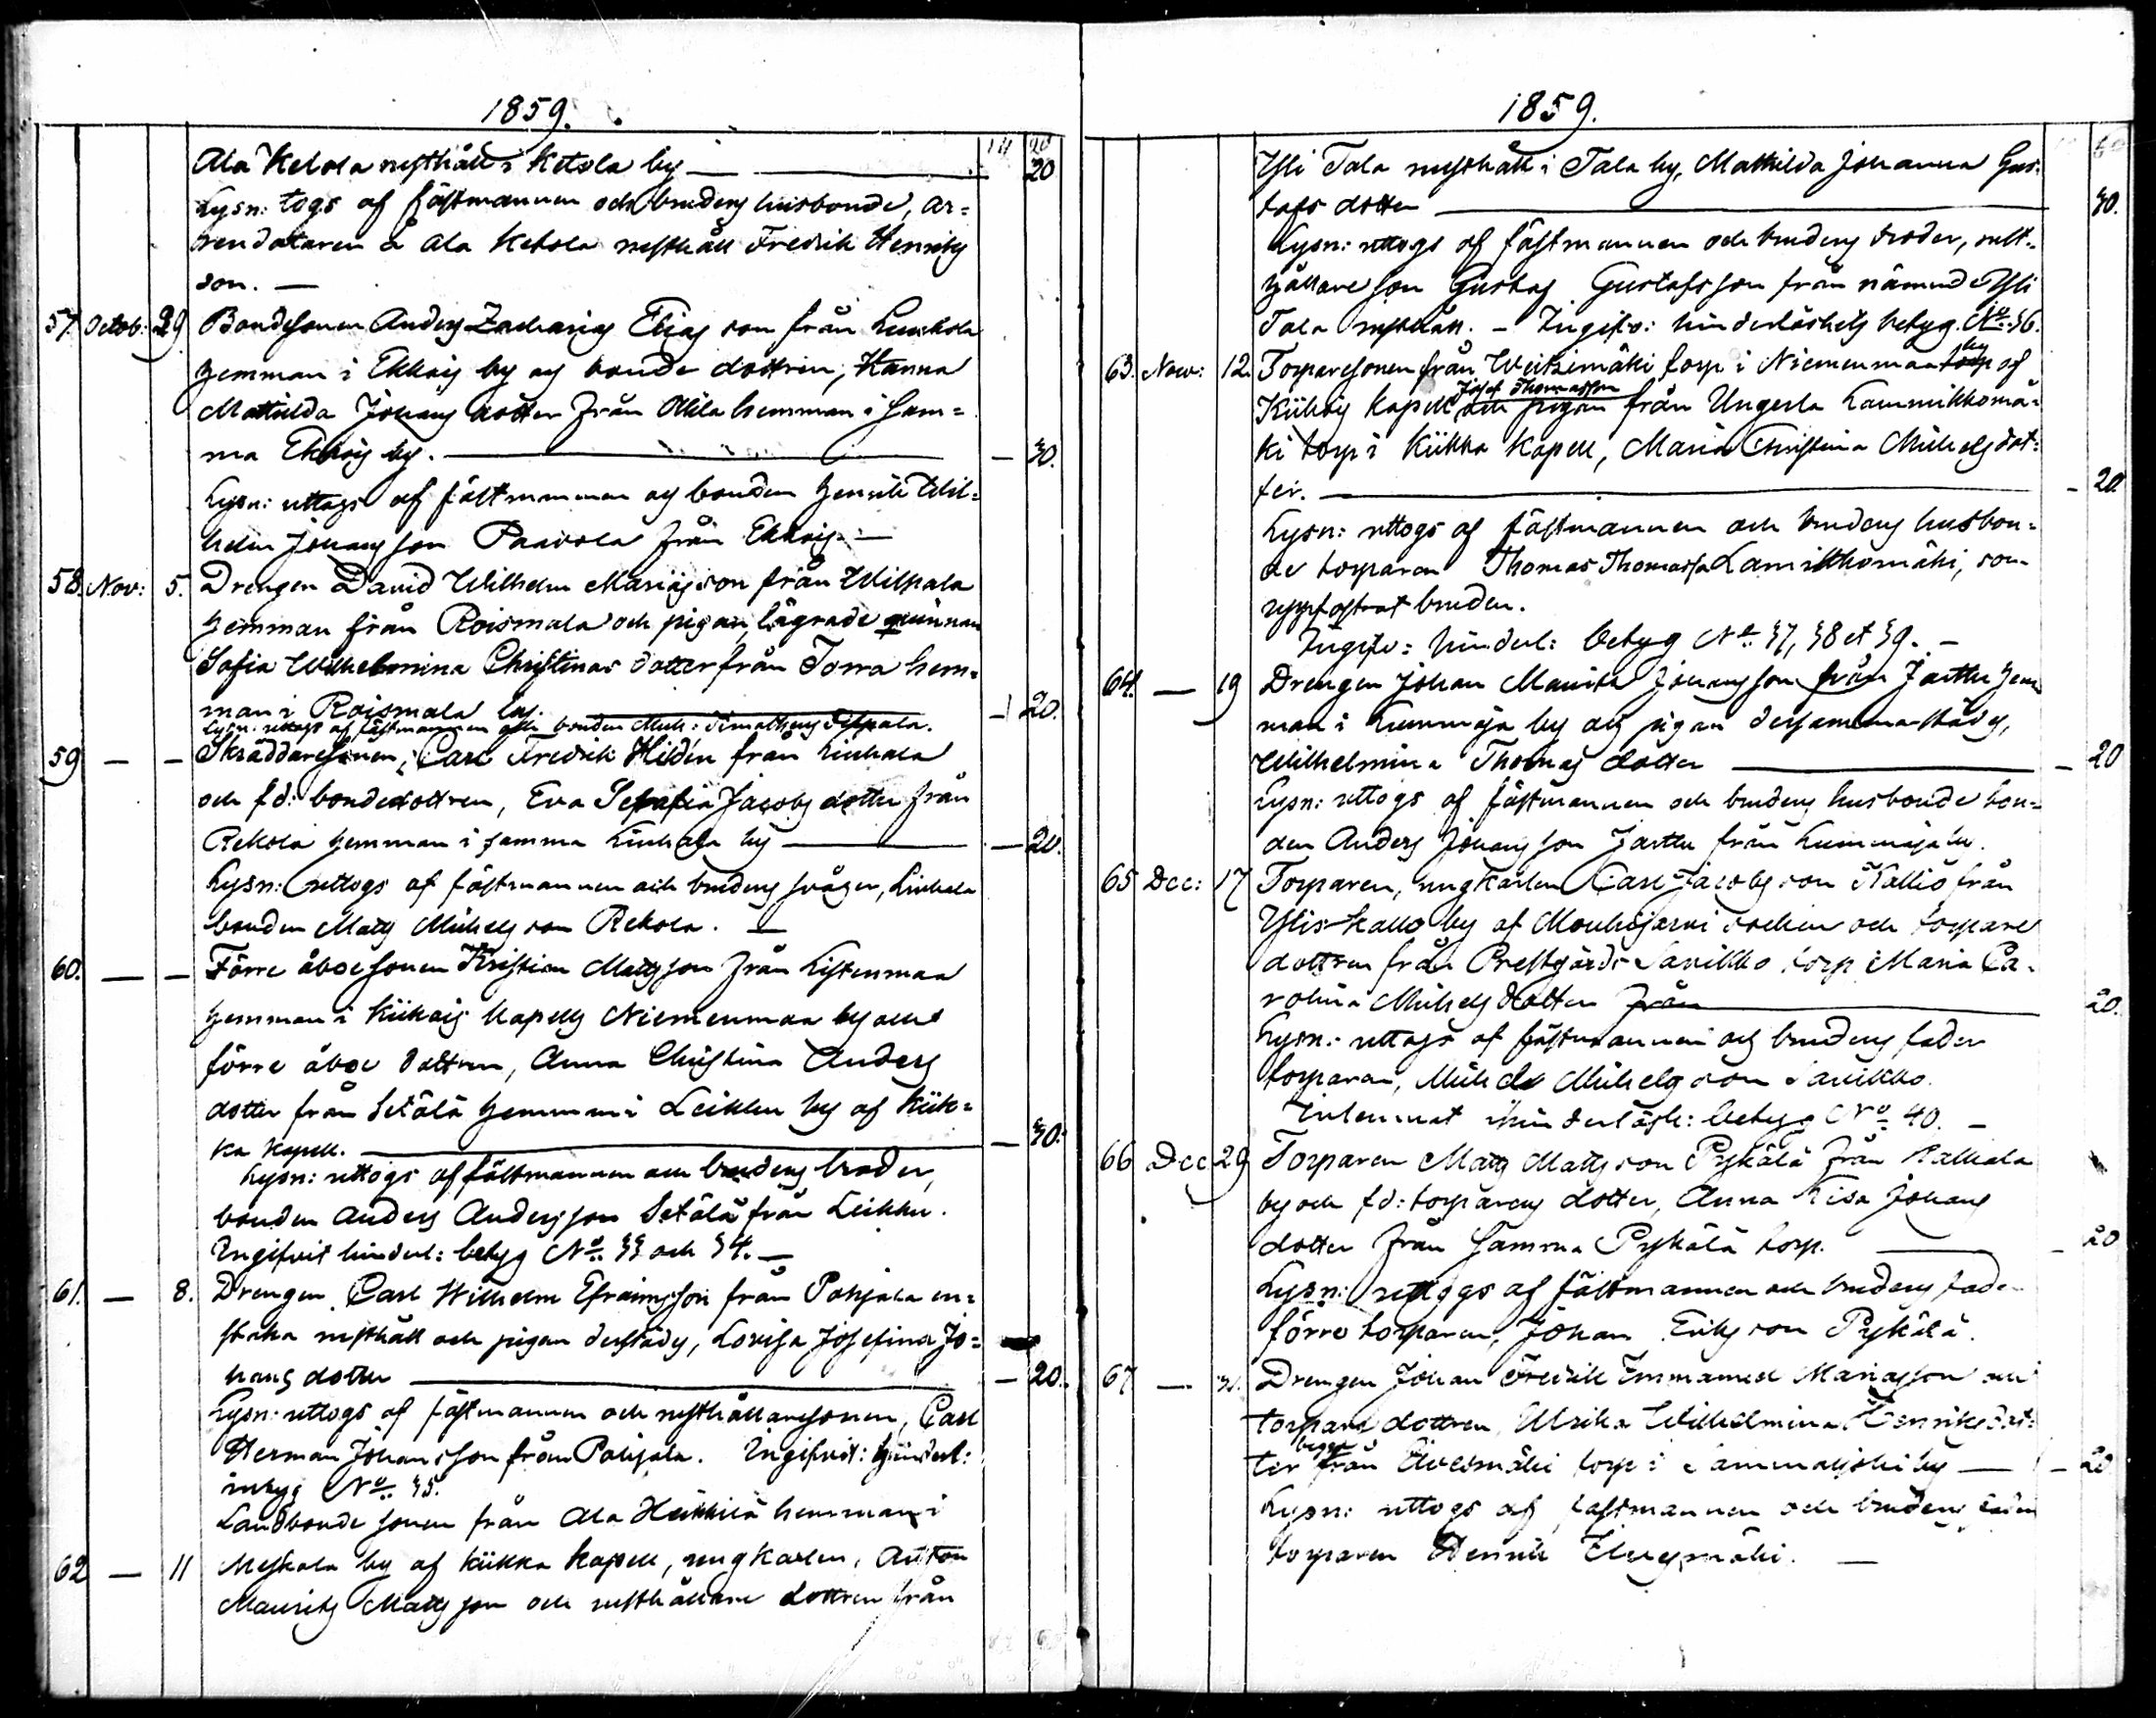 1859.
Ala Ketola rusthåll i Ketola by — 20
Lysn: togs af fästmannen och brudens husbonde, ar=
rendataren å Ala Ketola rusthåll Fredrik Henriks
son. —
57. Octob: 29. Bondesonen Anders Zacharias Elias son från
hemman i Ekkois by och bonde dottren, Hanna
Mathilda Johans dotter från Ollila hemman i sam=
ma Ekkois by. — 30.
Lysn: uttogs af fästmannen och bonden Henrik Wil=
helm Johansson Paavola från Ekkois. —
58. Nov: 5. Drengen David Wilhelm Mariæson från
hemman från Roismala och pigan, lägrade qvinnan
Sofia Wilhelmina Christinas dotter från Torra hem=
man i Roismala by. — 20.
Lysn: uttogs af fästmannen och bonden Mich:
59 — — Skräddaresonen, Carl Fredrik Hildén från Liuhala
och fd: bondedottren, Eva Jacobs dotter från
Rekola hemman i samma Liuhala by — 20.
Lysn: uttogs af fästmannen och brudens svåger, Liuhala
bonden Matts Michels son Rekola. —
60. — — Förre åboesonen Kristian Mattsson från
hemman i Kiikois kapells Niemenmaa by och
förre åboe dottren, Anna Christina Anders
dotter från Setälä hemman i Leikku by af Kiik=
ka kapell. — 30.
Lysn: uttogs af fästmannen och brudens broder,
bonden Anders Andersson Setälä från Leikku.
Ingifvit hinderl: betyg No. 33 och 34. —
61. — 8. Drengen Carl Wilhelm Efraimsson från Pohjala en=
staka rusthåll och pigan derstädes, Lovisa Josefina Jo=
hans dotter — 20.
Lysn: uttogs af fästmannen och rusthållaresonen, Carl
Herman Johansson från Pohjala. Ingifvit: hinderl:
betyg No. 35.
Landbonde sonen från Ala Heikkilä hemman i
62 — 11 Meskala by af Kiikka kapell, ungkarlen, Anton
Maurits Mattsson och rusthållare dottren från
1859.
Yli Tala rusthåll i Tala by, Mathilda Johanna Gus=
tafs dotter — 30.
Lysn: uttogs af fästmannen och brudens broder, rust=
hållare son Gustaf Gustafsson från nämnde Yli
Tala rusthåll. — Ingifv: hinderlöshets betyg. No. 36.
63. Nov: 12. Torparesonen från Weitsimäki torp i Niemenmaa by af
Kiikois kapell Josef Thomasson och pigan från Ungerla Lammikkomä=
ki torp i Kiikka kapell, Maria Christina Michels dot=
ter. — 20.
Lysn: uttogs af fästmannen och brudens husbon=
de torparen Thomas Thomasson Lamikkomäki, som
uppfostrat bruden.
Ingifv: hinderl: betyg No. 37, 38 et 39. —
64. — 19 Drengen Johan Maurits Johansson från Jarttu hem
man i Kummaja by och pigan dersammastädes,
Wilhelmina Thomas dotter — 20
Lysn: uttogs af fästmannen och brudens husbonde bon=
den Anders Johansson Jarttu från Kummaja by.
65 Dec: 17 Torparen, ungkarlen Carl Jacobs son Kallio från
Yliskallo by af Mouhijärvi socken och torpare
dottren från Prestgårds Savikko torp Maria Ca=
rolina Michels dotter från — 20.
Lysn: uttogs af fästmannen och brudens fader
torparen, Michel Michels son Savikko.
Inlemnat hinderlösh: betyg No. 40. —
66 Dec 29 Torparen Matts Matts son Pykälä från
by och fd: torparens dotter, Anna Lisa Johans
dotter från samma Pykälä torp. — 20
Lysn: uttogs af fästmannen och brudens fader
förre torparen, Johan Eriks son Pykälä.
67 — Drengen Johan Fredrik Emmanuel Mariasson och
torpare dottren, Ulrika Wilhelmina Henriks dot=
ter begge från torp i Sammaljoki by — 20
Lysn: uttogs af fästmannen och brudens fader
torparen Henrik —